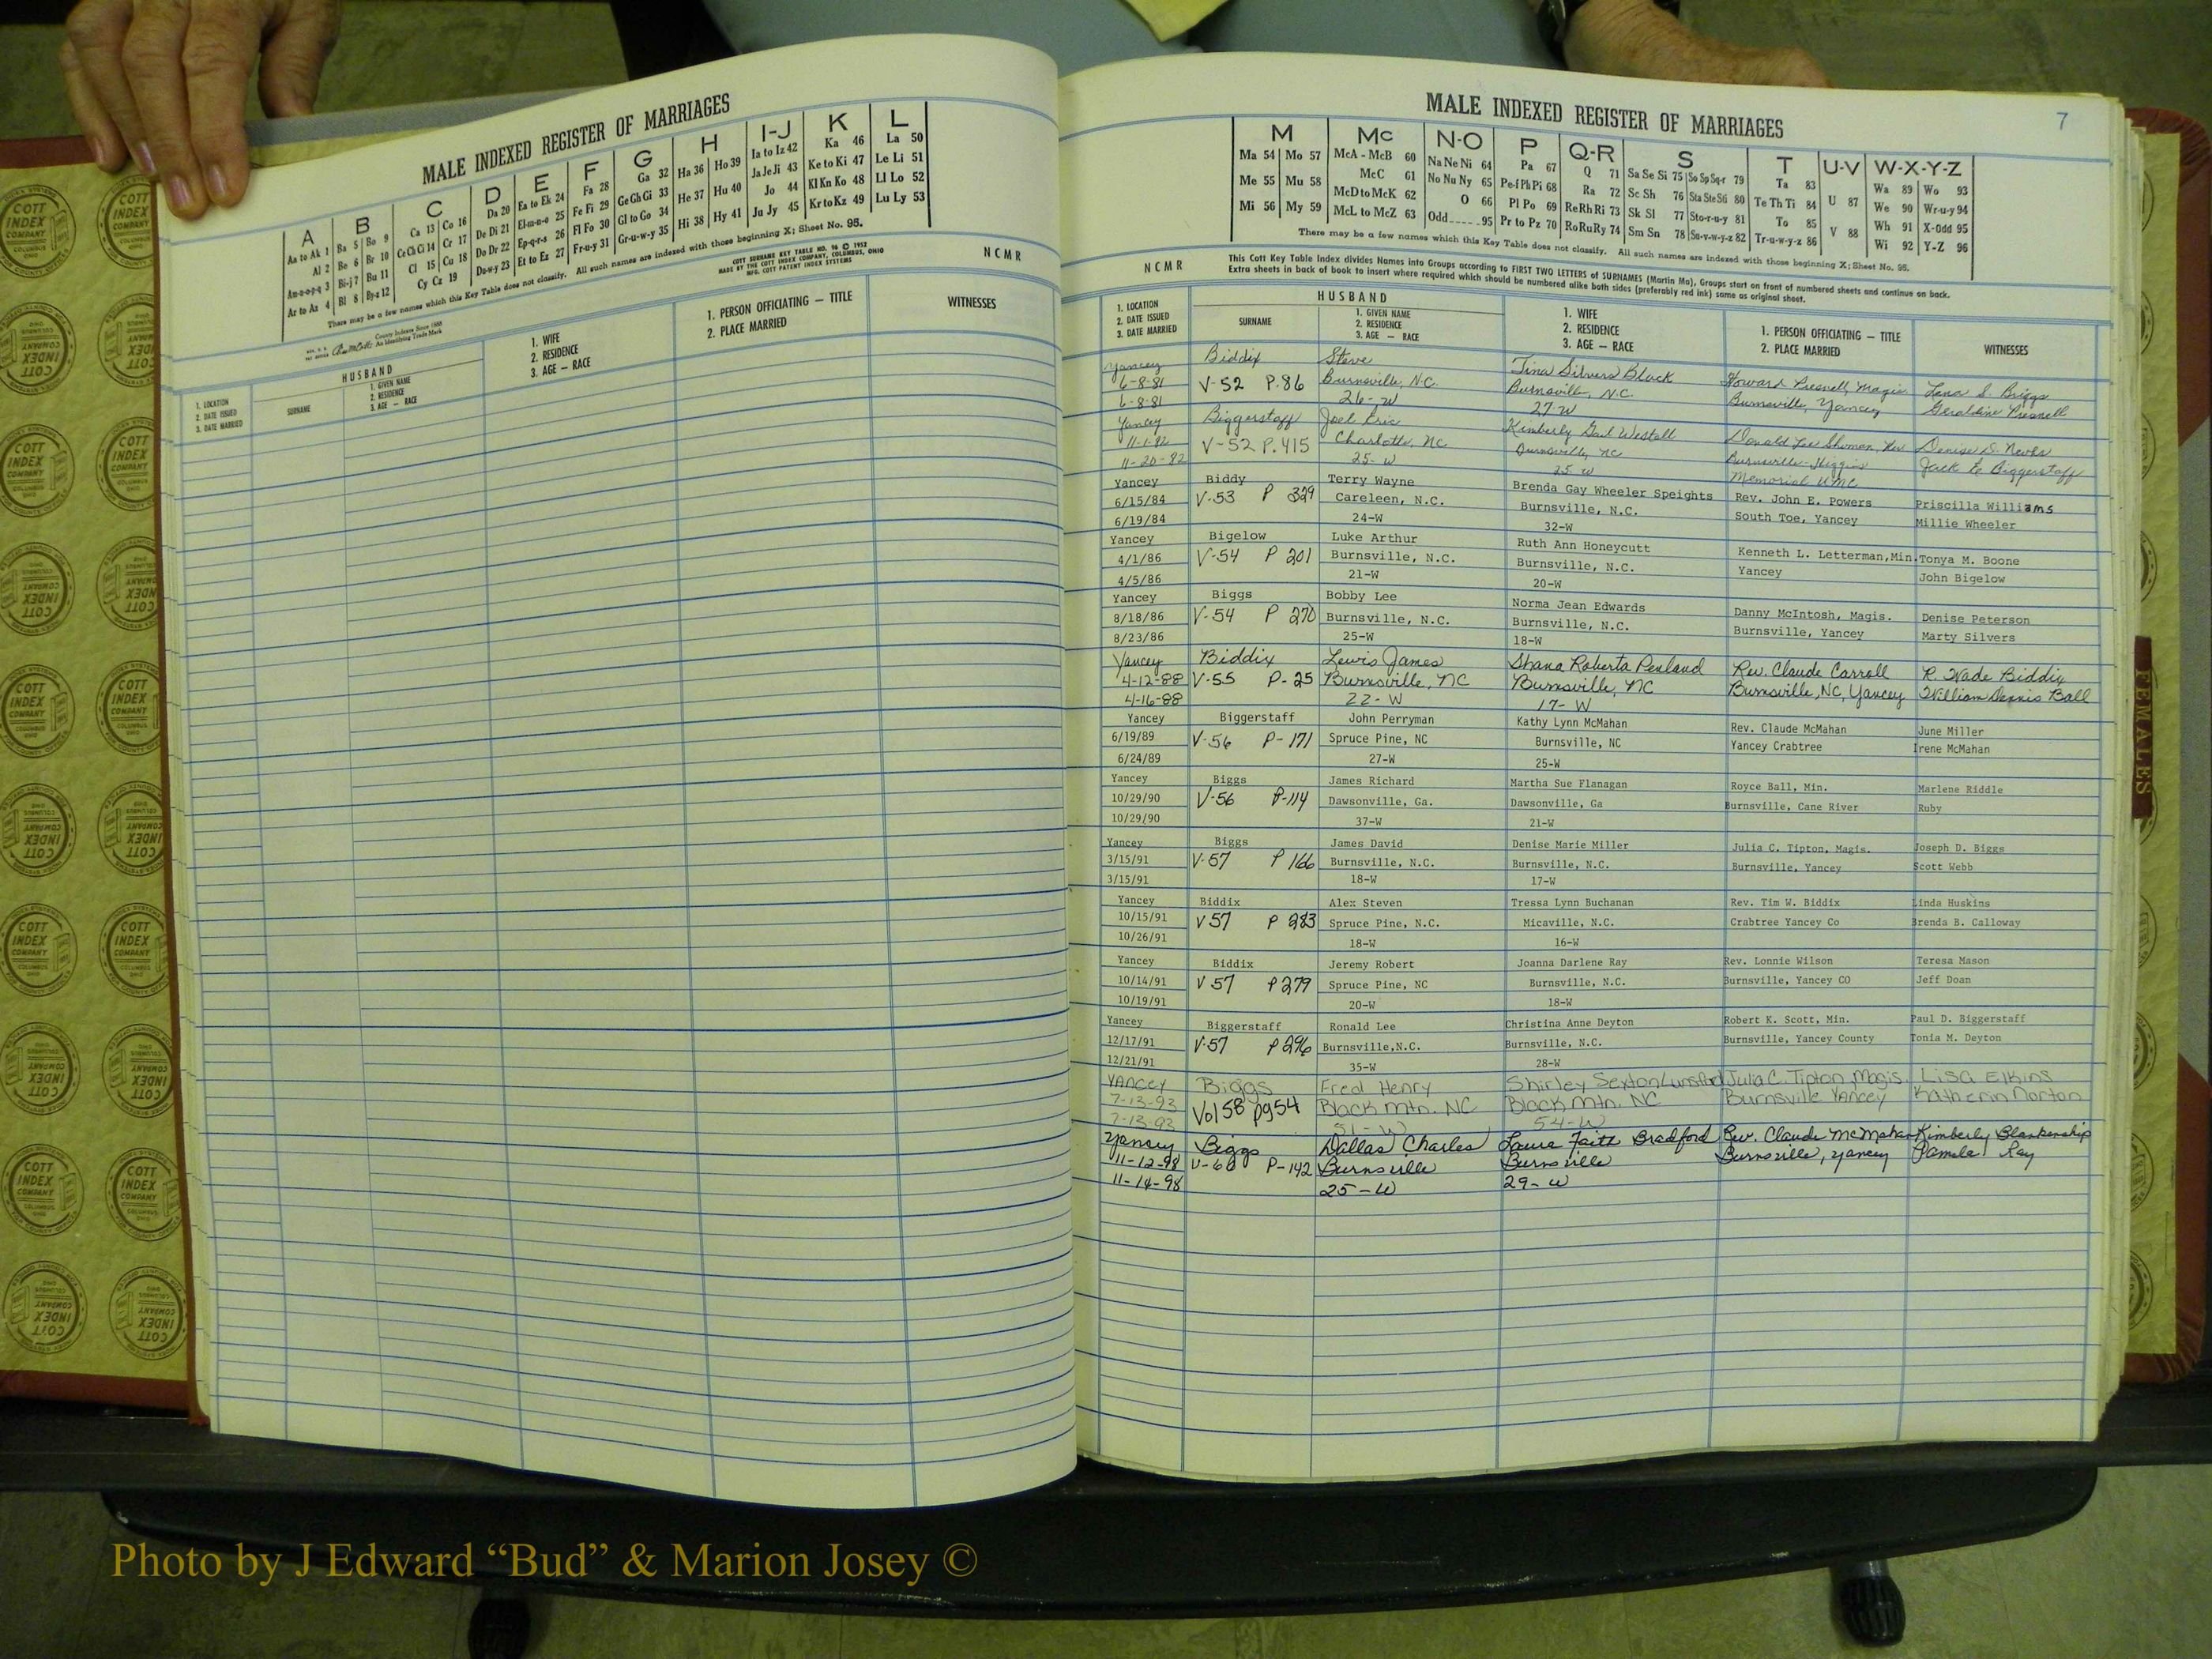 MALE INDEXED REGISTER OF MARRIAGES
A B C D E F G H I-J K L
Aa to Ak 1 Ba 5 Bo 9 Ca 13 Co 16 Da 20 Ea to Ek 24 Fa 28 Ga 32 Ha 36 Ho 39 Ia to Iz 42 Ka 46 La 50
Al 2 Be 6 Br 10 Ce Ch Ci 14 Cr 17 De Di 21 El-m-n-o 25 Fe Fi 29 Ge Gh Gi 33 He 37 Hu 40 Ja Je Ji 43 Ke to Ki 47 Le Li 51
Am-n-o-p-q 3 Bi-j 7 Bu 11 Cl 15 Cu 18 Do Dr 22 Ep-q-r-s 26 Fl Fo 30 Gl to Go 34 Hi 38 Hy 41 Jo 44 Kl Kn Ko 48 Ll Lo 52
Ar to Az 4 Bl 8 By-z 12 Cy Cz 19 Du-w-y 23 Et to Ez 27 Fr-u-y 31 Gr-u-w-y 35 Ju Jy 45 Kr to Kz 49 Lu Ly 53
There may be a few names which this Key Table does not classify. All such names are indexed with those beginning X; Sheet No. 95.
County Indexes Since 1888
An Identifying Trade Mark
COTT SURNAME KEY TABLE NO. 96 © 1952
MADE BY THE COTT INDEX COMPANY, COLUMBUS, OHIO
MFG. COTT PATENT INDEX SYSTEMS
NCMR
1. LOCATION
2. DATE ISSUED
3. DATE MARRIED
HUSBAND
SURNAME
1. GIVEN NAME
2. RESIDENCE
3. AGE — RACE
1. WIFE
2. RESIDENCE
3. AGE — RACE
1. PERSON OFFICIATING — TITLE
2. PLACE MARRIED
WITNESSES
MALE INDEXED REGISTER OF MARRIAGES 7
M Mc N-O P Q-R S T U-V W-X-Y-Z
Ma 54 Mo 57 McA - McB 60 Na Ne Ni 64 Pa 67 Q 71 Sa Se Si 75 So Sp Sq-r 79 Ta 83 U 87 Wa 89 Wo 93
Me 55 Mu 58 McC 61 No Nu Ny 65 Pe-f Ph Pi 68 Ra 72 Sc Sh 76 Sta Ste Sti 80 Te Th Ti 84 V 88 We 90 Wr-u-y 94
Mi 56 My 59 McD to McK 62 O 66 Pl Po 69 Re Rh Ri 73 Sk Sl 77 Sto-r-u-y 81 To 85 Wh 91 X-Odd 95
McL to McZ 63 Odd 95 Pr to Pz 70 Ro Ru Ry 74 Sm Sn 78 Su-v-w-y-z 82 Tr-u-w-y-z 86 Wi 92 Y-Z 96
There may be a few names which this Key Table does not classify. All such names are indexed with those beginning X; Sheet No. 95.
NCMR
This Cott Key Table Index divides Names into Groups according to FIRST TWO LETTERS of SURNAMES (Martin Ma), Groups start on front of numbered sheets and continue on back.
Extra sheets in back of book to insert where required which should be numbered alike both sides (preferably red ink) same as original sheet.
1. LOCATION
2. DATE ISSUED
3. DATE MARRIED
HUSBAND
SURNAME
1. GIVEN NAME
2. RESIDENCE
3. AGE — RACE
1. WIFE
2. RESIDENCE
3. AGE — RACE
1. PERSON OFFICIATING — TITLE
2. PLACE MARRIED
WITNESSES
Yancey Biddix Steve Tina Silvers Black Howard Presnell, Magis. Lena S. Briggs
6-8-81 V-52 P.86 Burnsville, N.C. Burnsville, N.C. Burnsville, Yancey Geraldine Presnell
6-8-81 26-W 27-W
Yancey Biggerstaff Joel Eric Kimberly Gail Westall Donald Lee Shuman, Rev Denise S.
11-1-82 V-52 P.415 Charlotte, NC Burnsville, NC Burnsville-Higgins Jack Biggerstaff
11-20-82 25-W 25 W Memorial UMC
Yancey Biddy Terry Wayne Brenda Gay Wheeler Speights Rev. John E. Powers Priscilla Williams
6/15/84 V-53 P 329 Careleen, N.C. Burnsville, N.C. South Toe, Yancey Millie Wheeler
6/19/84 24-W 32-W
Yancey Bigelow Luke Arthur Ruth Ann Honeycutt Kenneth L. Letterman,Min. Tonya M. Boone
4/1/86 V-54 P 201 Burnsville, N.C. Burnsville, N.C. Yancey John Bigelow
4/5/86 21-W 20-W
Yancey Biggs Bobby Lee Norma Jean Edwards Danny McIntosh, Magis. Denise Peterson
8/18/86 V-54 P 270 Burnsville, N.C. Burnsville, N.C. Burnsville, Yancey Marty Silvers
8/23/86 25-W 18-W
Yancey Biddix Lewis James Shana Roberta Penland Rev. Claude Carroll R. Wade Biddix
4-12-88 V-55 P-25 Burnsville, NC Burnsville, NC Burnsville, NC, Yancey William Dennis Ball
4-16-88 22-W 17-W
Yancey Biggerstaff John Perryman Kathy Lynn McMahan Rev. Claude McMahan June Miller
6/19/89 V-56 P-171 Spruce Pine, NC Burnsville, NC Yancey Crabtree Irene McMahan
6/24/89 27-W 25-W
Yancey Biggs James Richard Martha Sue Flanagan Royce Ball, Min. Marlene Riddle
10/29/90 V-56 P-114 Dawsonville, Ga. Dawsonville, Ga Burnsville, Cane River Ruby
10/29/90 37-W 21-W
Yancey Biggs James David Denise Marie Miller Julia C. Tipton, Magis. Joseph D. Biggs
3/15/91 V-57 P 166 Burnsville, N.C. Burnsville, N.C. Burnsville, Yancey Scott Webb
3/15/91 18-W 17-W
Yancey Biddix Alex Steven Tressa Lynn Buchanan Rev. Tim W. Biddix Linda Huskins
10/15/91 V 57 P 283 Spruce Pine, N.C. Micaville, N.C. Crabtree Yancey Co Brenda B. Calloway
10/26/91 18-W 16-W
Yancey Biddix Jeremy Robert Joanna Darlene Ray Rev. Lonnie Wilson Teresa Mason
10/14/91 V 57 P 279 Spruce Pine, NC Burnsville, N.C. Burnsville, Yancey CO Jeff Doan
10/19/91 20-W 18-W
Yancey Biggerstaff Ronald Lee Christina Anne Deyton Robert K. Scott, Min. Paul D. Biggerstaff
12/17/91 V-57 P 296 Burnsville,N.C. Burnsville, N.C. Burnsville, Yancey County Tonia M. Deyton
12/21/91 35-W 28-W
YANCEY Biggs Fred Henry Shirley Sexton Lunsford Julia C. Tipton, Magis. Lisa Elkins
7-13-93 Vol 58 pg 54 Black Mtn. NC Black Mtn. NC Burnsville Yancey Katherin Norton
7-13-93 51-W 54-W
Yancey Biggs Dallas Charles Laura Faith Bradford Rev. Claude McMahan Kimberly Blankenship
11-12-98 V-60 P-142 Burnsville Burnsville Burnsville, Yancey Pamela Ray
11-14-98 25-W 29-W
FEMALES
COTT INDEX COMPANY
COLUMBUS OHIO
Photo by J Edward “Bud” & Marion Josey ©